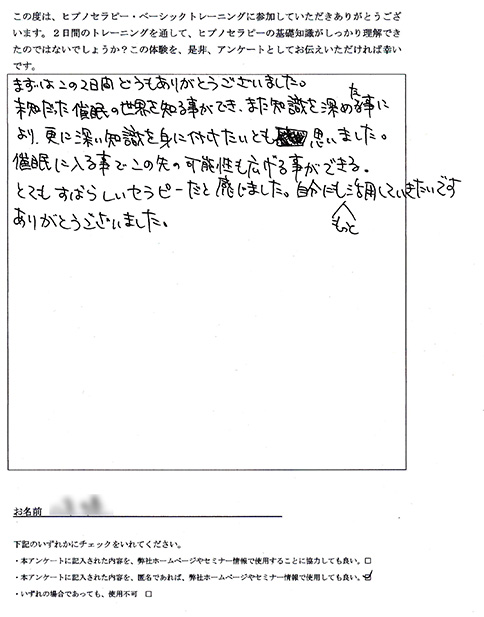 この度は、ヒプノセラピー・ベーシックトレーニングに参加していただきありがとうござ
います。2日間のトレーニングを通して、ヒプノセラピーの基礎知識がしっかり理解でき
たのではないでしょうか？この体験を、是非、アンケートとしてお伝えいただければ幸い
です。
まずはこの2日間どうもありがとうございました。
未知だった催眠の世界を知る事ができ、また知識を深めた事に
より、更に深い知識を身に付けたいとも思いました。
催眠に入る事でこの先の可能性も広げる事ができる。
とてもすばらしいセラピーだと感じました。自分にももっと活用していきたいです
ありがとうございました。
お名前
下記のいずれかにチェックをいれてください。
・本アンケートに記入された内容を、弊社ホームページやセミナー情報で使用することに協力しても良い。□
・本アンケートに記入された内容を、匿名であれば、弊社ホームページやセミナー情報で使用しても良い。☑
・いずれの場合であっても、使用不可 □